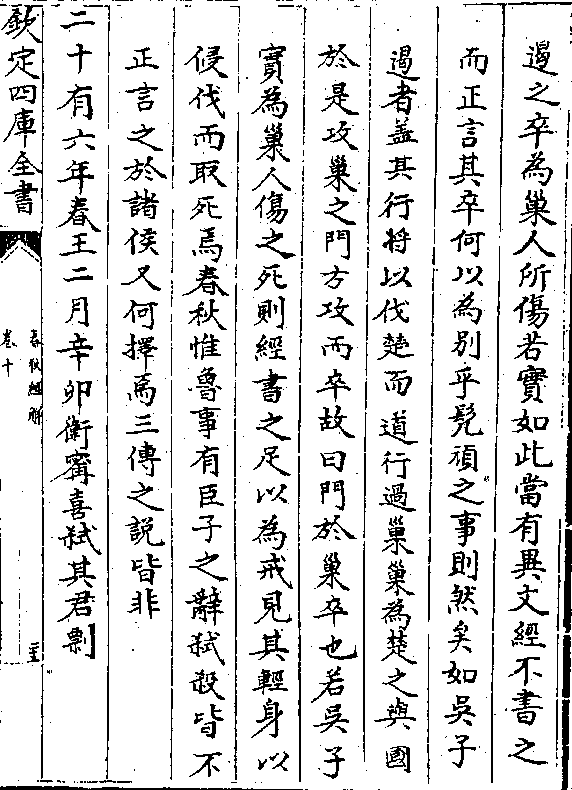 遏之卒為巢人所傷若實如此當有異文經不書之
而正言其卒何以為別乎髠頑之事則然矣如吳子
遏者蓋其行將以伐楚而道行過巢巢為楚之與國
於是攻巢之門方攻而卒故曰門於巢卒也若吳子
實為巢人傷之死則經書之足以為戒見其輕身以
侵伐而取死焉春秋惟魯事有臣子之辭弑殺皆不
正言之於諸侯又何擇焉三傳之説皆非
二十有六年春王二月辛卯衛甯喜弑其君剽
欽定四庫全書
春秋經解
卷十